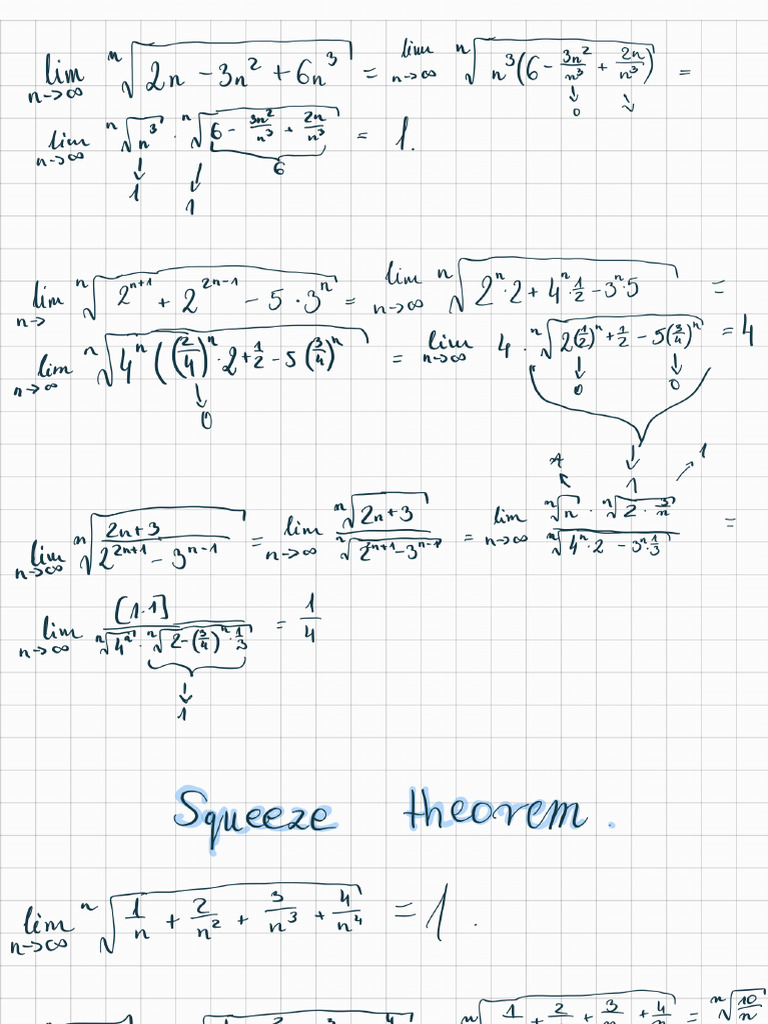 lim n→∞ ⁿ√(2n − 3n² + 6n³) = lim n→∞ ⁿ√(n³(6 − 3n²/n³ + 2n/n³)) =
↓ 0 ↘
lim n→∞ ⁿ√(n³) · ⁿ√(6 − 3n²/n³ + 2n/n³) = 1.
↓ 1 ↓ 1 6
lim n→ ⁿ√(2ⁿ⁺¹ + 2²ⁿ⁻¹ − 5 · 3ⁿ) = lim n→∞ ⁿ√(2ⁿ·2 + 4ⁿ·1/2 − 3ⁿ·5) =
lim n→∞ ⁿ√(4ⁿ((2/4)ⁿ·2 + 1/2 − 5(3/4)ⁿ) = lim n→∞ 4 · ⁿ√(2(1/2)ⁿ + 1/2 − 5(3/4)ⁿ) = 4
↓ 0 ↓ 0 ↓ 0
↓ 1
1 ↖ ↗ 1
lim n→∞ ⁿ√((2n+3)/(2²ⁿ⁺¹ − 3ⁿ⁻¹)) = lim n→∞ ⁿ√(2n+3)/ⁿ√(2²ⁿ⁺¹ − 3ⁿ⁻¹) = lim n→∞ (ⁿ√n · ⁿ√(2 · 3/n))/ⁿ√(4ⁿ·2 − 3ⁿ·1/3) =
lim n→∞ [1·1]/(ⁿ√(4ⁿ) · ⁿ√(2 − (3/4)ⁿ·1/3)) = 1/4
↓ 1
Squeeze theorem.
lim n→∞ ⁿ√(1/n + 2/n² + 3/n³ + 4/n⁴) = 1.